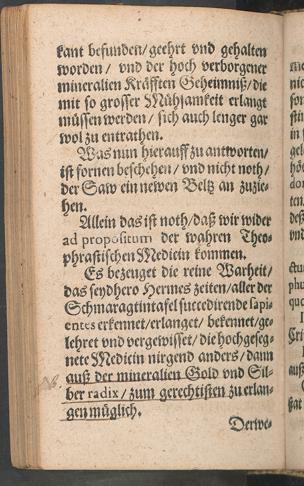 kant befunden/geehrt vnd gehalten
worden/ vnd der hoch verborgener
mineralien Kräfften Geheimniß/die
mit so grosser Mühsamkeit erlangt
müssen werden/ sich auch lenger gar
wol zu entrathen.
Was nun hierauff zu antworten/
ist fornen beschehen/ vnd nicht noth/
der Saw ein newen Beltz an zuzie-
hen.
Allein das ist noth/daß wir wider
ad propositum der wahren Theo-
phrastischen Medicin kommen.
Es bezeuget die reine Warheit/
das seydhero Hermes zeiten/aller der
Schmaragtintafel succedirende sapi-
entes erkennet/erlanget/ bekennet/ge-
lehret vnd vergewisset/ die hochgeseg-
nete Medicin nirgend anders/ dann
auß der mineralien Gold vnd Sil-
ber radix/ zum gerechtisten zu erlan-
gen müglich.
Derwe-